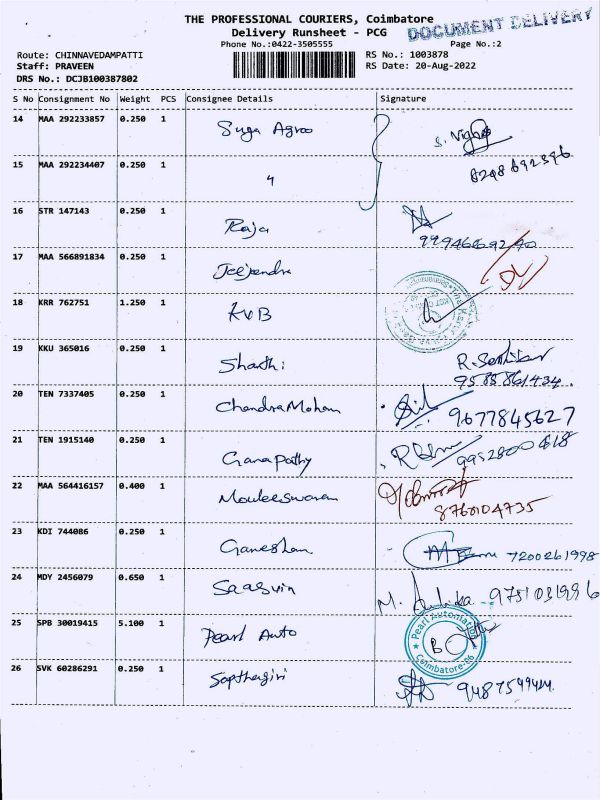 THE PROFESSIONAL COURIERS, Coimbatore
DOCUMENT DELIVERY
Delivery Runsheet - PCG
Phone No.:0422-3505555
Page No.:2
Route: CHINNAVEDAMPATTI
RS No.: 1003878
Staff: PRAVEEN
RS Date: 20-Aug-2022
DRS No.: DCJB100387802
S No Consignment No Weight PCS Consignee Details Signature
14 MAA 292233857 0.250 1 Suga Agroo
15 MAA 292234407 0.250 1 " 8248692396
16 STR 147143 0.250 1 Raja
17 MAA 566891834 0.250 1
18 KRR 762751 1.250 1 KVB
19 KKU 365016 0.250 1 Shanthi
9585861434.
20 TEN 7337405 0.250 1 ChandraMohan 9677845627
21 TEN 1915140 0.250 1 Ganapathy 9952800618
22 MAA 564416157 0.400 1 Mouleeswaran
8760104735
23 KDI 744086 0.250 1 Ganeshan 7200261998
24 MDY 2456079 0.650 1 Saasvin 9751031996
25 SPB 30019415 5.100 1 Pearl Auto Pearl Automation Coimbatore-06
26 SVK 60286291 0.250 1 Sapthagiri